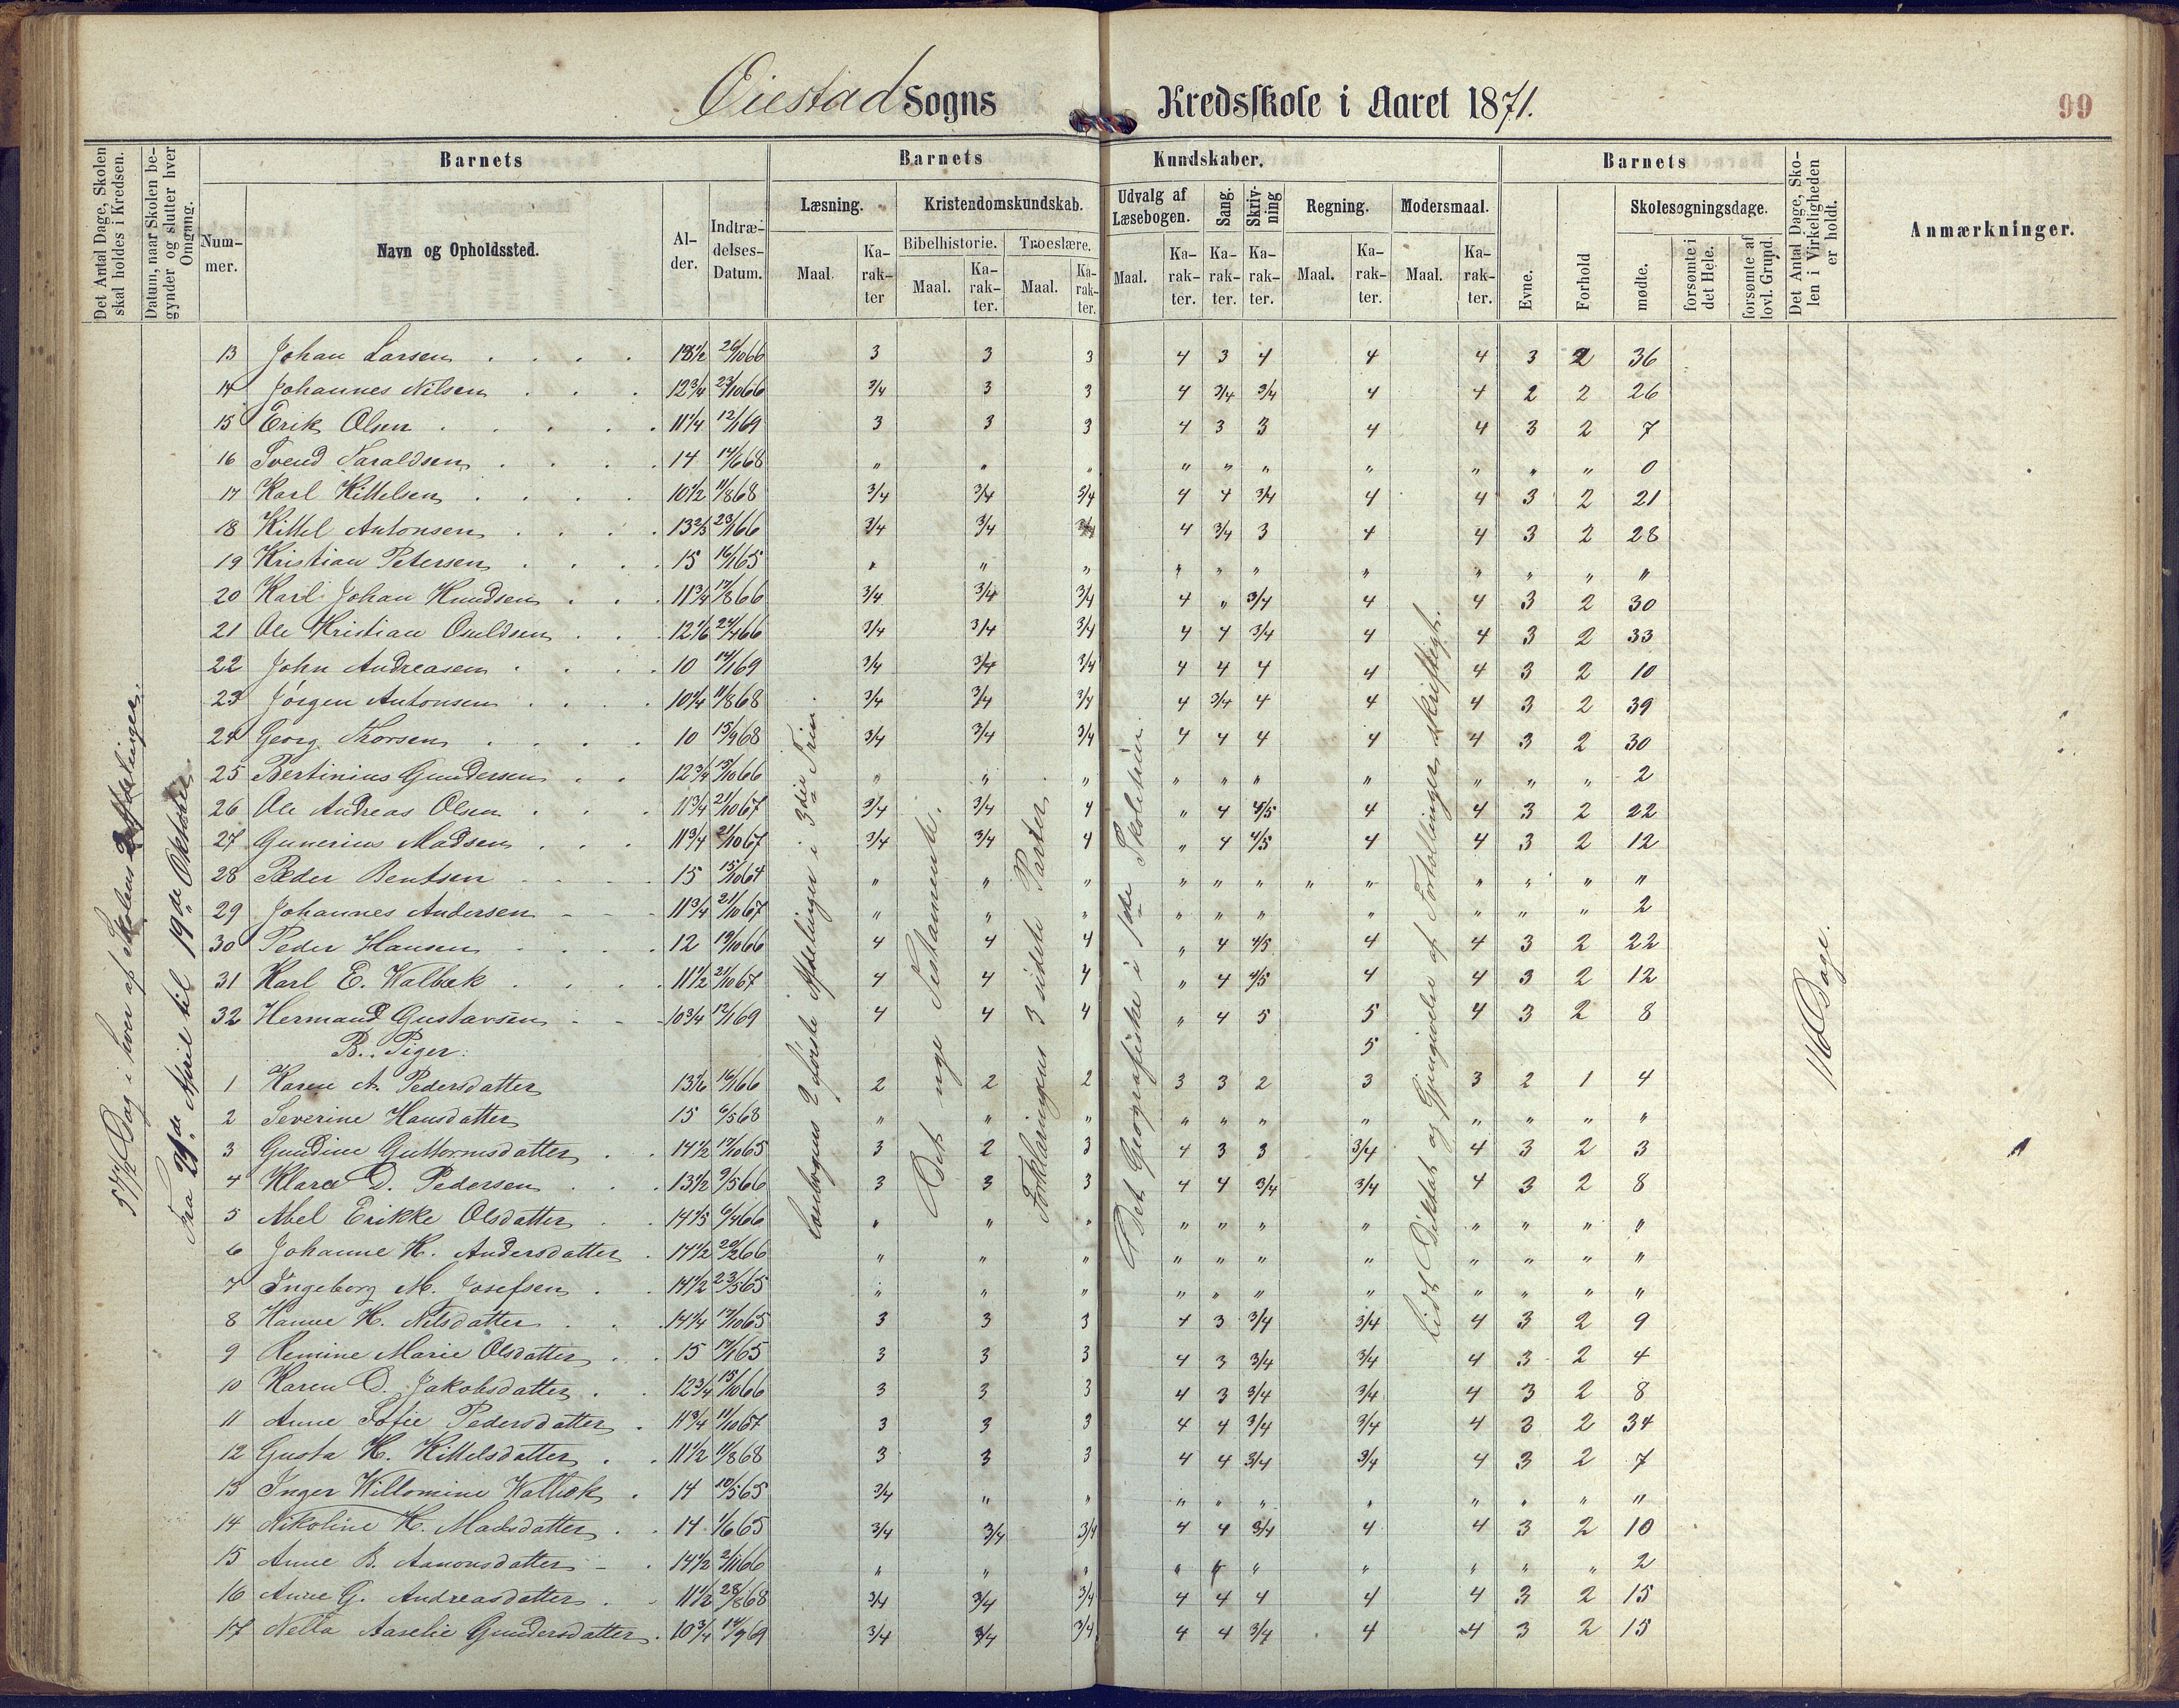 Øiestad Sogns Kredsskole i Aaret 1871.
99
Det Antal Dage, Skolen skal holdes i Kredsen.
Datum, naar Skolen begynder og slutter hver Omgang.
Barnets
Nummer.
Navn og Opholdssted.
Alder.
Indtrædelses-Datum.
Barnets Kundskaber.
Læsning.
Maal.
Karakter
Kristendomskundskab.
Bibelhistorie.
Maal.
Karakter.
Troeslære.
Maal.
Karakter.
Udvalg af Læsebogen.
Maal.
Karakter.
Sang.
Karakter.
Skrivning
Karakter.
Regning.
Maal.
Karakter.
Modersmaal.
Maal.
Karakter.
Barnets
Evne.
Forhold
Skolesøgningsdage.
mødte.
forsømte i det Hele.
forsømte af lovl. Grund.
Det Antal Dage, Skolen i Virkeligheden er holdt.
Anmærkninger.
57 1/2 Dag i hver af Skolens 2 Afdelinger.
Fra 29de April til 19de Oktober
Læsebogens 2 første Afdelinger i 3die Trin.
Det nye Testamente.
Forklaringens 3 sidste Parter.
Det Geografiske i 1ste Skoletrin.
Lidt Diktat og Gjengivelse af Fortellinger skriftligt.
116 Dage.
13 Johan Larsen 26/10 66 3 3 3 4 3 4 4 4 3 2 36
14 Johannes Nilsen 12 3/4 23/10 66 3/4 3 3 4 3/4 3/4 4 4 2 2 26
15 Erik Olsen 11 1/4 12/1 69 3 3 3 4 3 3 4 4 3 2 7
16 Svend Taraldsen 14 14/6 68 " " " " " " " " " " 0
17 Karl Kittelsen 10 1/2 11/8 68 3/4 3/4 3/4 4 4 3/4 4 4 3 2 21
18 Kittel Antonsen 13 2/3 23/1 66 3/4 3/4 3/4 4 3/4 3 4 4 3 2 28
19 Kristian Petersen 15 16/1 65 " " " " " " " " " " "
20 Karl Johan Knudsen 11 3/4 17/8 66 3/4 3/4 3/4 4 " 3/4 4 4 3 2 30
21 Ole Kristian Osuldsen 12 1/6 24/4 66 3/4 3/4 3/4 4 4 3/4 4 4 3 2 33
22 John Andreasen 10 14/1 69 3/4 3/4 3/4 4 4 4 4 4 3 2 10
23 Jörgen Antonsen 10 1/4 11/8 68 3/4 3/4 3/4 4 3/4 4 4 4 3 2 39
24 Georg Thorsen 10 15/9 68 3/4 3/4 3/4 4 4 4 4 4 3 2 30
25 Bertinius Gundersen 12 3/4 15/10 66 " " " " " " " " " " 2
26 Ole Andreas Olsen 11 3/4 21/10 67 3/4 3/4 4 " 4 4/5 4 4 3 2 22
27 Gunerius Madsen 11 3/4 21/10 67 3/4 3/4 4 " 4 4/5 4 4 3 2 12
28 Peder Bentsen 15 15/10 64 " " " " " " " " " " " "
29 Johannes Andersen 11 3/4 21/10 67 " " " " " " " " " " 2
30 Peder Hansen 12 19/10 66 4 4 4 " 4 4/5 4 4 3 2 22
31 Karl E. Valbæk 11 1/2 21/10 67 4 4 4 " 4 4/5 4 4 3 2 12
32 Hermand Gustavsen 10 3/4 12/1 69 4 4 4 " 4 5 5 4 3 2 8
B. Piger: 5
1 Karen A. Pedersdatter 13 1/6 16/1 66 2 2 2 3 3 2 3 3 2 1 4
2 Severine Hansdatter 15 6/5 68 " " " " " " " " " " "
3 Gundine Guttormsdatter 14 1/2 17/10 65 3 2 3 4 3 3 3/4 4 3 2 3
4 Klara D. Pedersen 13 1/2 9/5 66 3 3 3 4 4 3/4 3/4 4 3 2 8
5 Abel Erikke Olsdatter 14 1/5 6/4 66 " " " " " " " " " " "
6 Johanne K. Andersdatter 14 1/2 20/2 66 " " " " " " " " " " "
7 Ingeborg M. Josefsen 14 1/2 23/5 65 " " " " " " " " " " "
8 Hanne H. Nilsdatter 14 1/4 17/10 65 3 3 3 4 3 3/4 3/4 4 3 2 9
9 Remine Marie Olsdatter 15 17/1 65 3 3 3 4 3 3/4 3/4 4 3 2 4
10 Karen D. Jakobsdatter 12 3/4 15/10 66 3 3 3 4 3 3/4 3/4 4 3 2 8
11 Anne Sofie Pedersdatter 11 3/4 11/10 67 3 3 3 4 4 3/4 3/4 4 3 2 34
12 Gusta K. Kittelsdatter 11 1/2 11/8 68 3 3 3 4 4 3/4 3/4 4 3 2 7
13 Inger Willomine Valbæk 14 10/5 65 3/4 " " " " " " " " " "
14 Nikoline K. Madsdatter 14 1/6 65 3/4 3/4 3/4 4 4 3/4 4 4 3 2 10
15 Anne B. Aanonsdatter 14 1/2 2/11 66 " " " " " " " " " " 2
16 Anne G. Andreasdatter 11 1/2 28/8 68 3/4 3/4 3/4 4 4 4 4 4 3 2 15
17 Nella Aaselie Gundersdatter 10 3/4 14/9 69 3/4 3/4 3/4 4 4 3/4 4 4 3 2 15